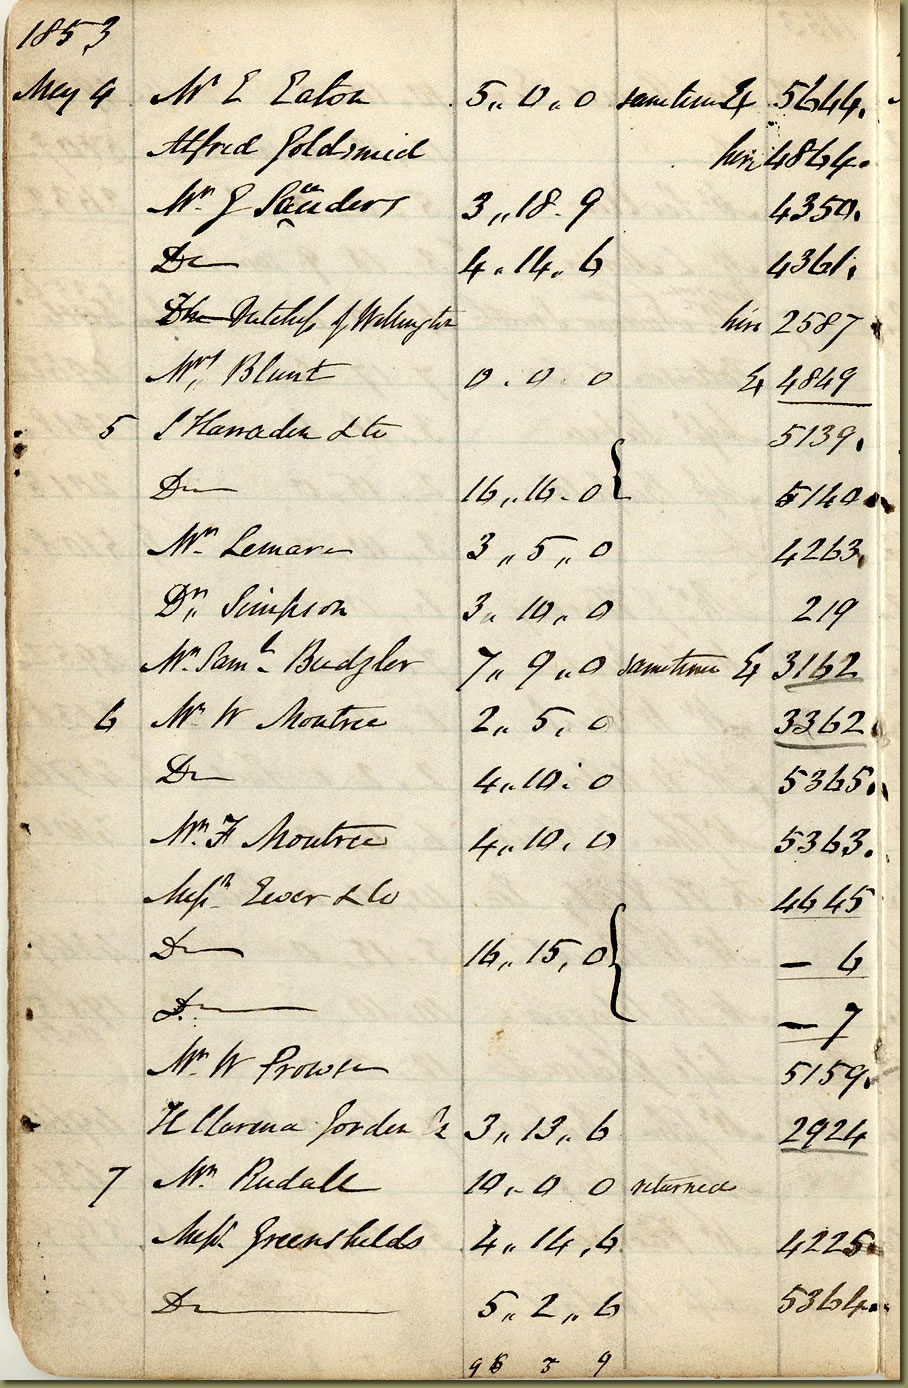 1853
May 4 Mr E Eaton 5,, 0,, 0 sometime Ex 5644.
Alfred Goldsmid hire 4864.
Mr. J Saunders 3,, 18. 9 4350.
Do 4,, 14,, 6 4361.
The Dutchess of Wellington hire 2587
Mrs,, Blunt 0 . 0 . 0 Ex 4849
5 S Harraden & Co 5139.
Do 16,, 16. 0 5140
Mr. Lemare 3,, 5,, 0 4263.
Dr,, Simpson 3,, 10,, 0 219
Mr Saml. 7,, 9,, 0 sometime Ex 3162
6 Mr W Montrie 2,, 5,, 0 3362
Do 4,, 10. 0 5365.
Mr. F Montrie 4,, 10. 0 5363.
Messrs Ewer & Co 4645
Do 16,, 15, 0 - 6
Do - 7
Mr. W Prowse 5159.
H Clarena Jorden 3,, 13,, 6 2924
7 Mr. Rudall 10,, 0 0 returned
Messrs Greenshields 4,, 14, 6 4225.
Do 5,, 2,, 6 5364.
96 3 9